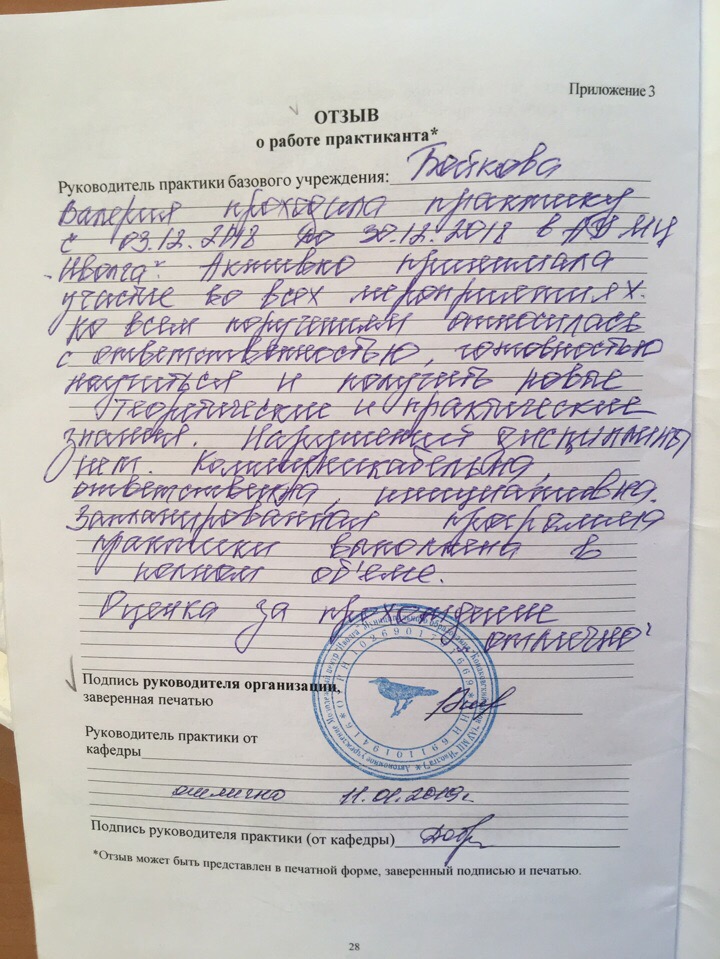 Приложение 3
ОТЗЫВ
о работе практиканта*
Руководитель практики базового учреждения: Бойкова
Валерия проходила практику
с 03.12.2018 до 30.12.2018 в АУ МЦ
"Иволга". Активно принимала
участие во всех мероприятиях.
Ко всем поручениям относилась
с ответственностью, готовностью
научиться и получить новые
теоретические и практические
знания. Нарушений дисциплины
нет. Коммуникабельна,
ответственна, инициативна.
Запланированная программа
практики выполнена в
полном объёме.
Оценка за прохождение
"отлично"
Подпись руководителя организации,
заверенная печатью
Руководитель практики от
кафедры
отлично 11.01.2019г.
Подпись руководителя практики (от кафедры)
*Отзыв может быть представлен в печатной форме, заверенный подписью и печатью.
28